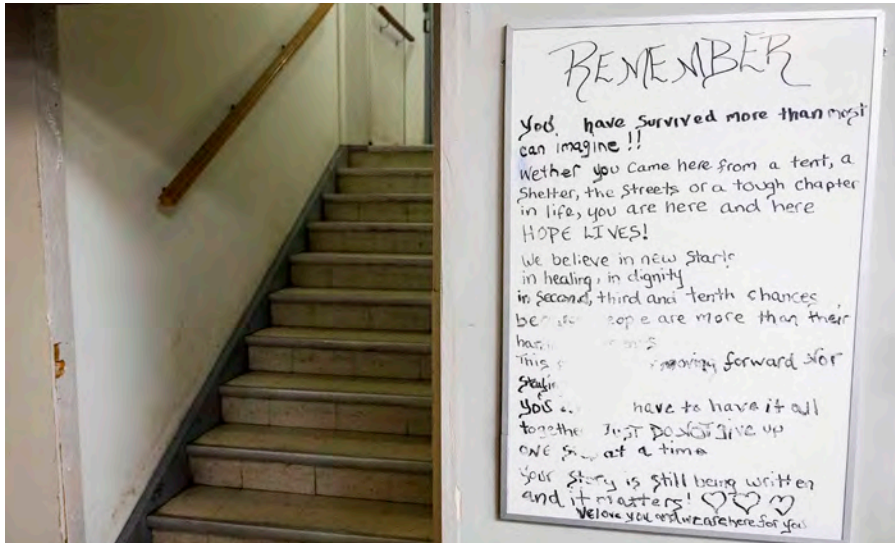 REMEMBER
You have survived more than most
can imagine !!
Wether you came here from a tent, a
Shelter, the Streets or a tough chapter
in life, you are here and here
HOPE LIVES!
We believe in new
in healing, in dignity
in Second, third and tenth chances
are more than their
This moving forward Nor
You have to have it all
JUST DO NOT Give up
ONE at a time
Your Story is still being written
and it matters! ♡♡♡
We love you and we are here for you